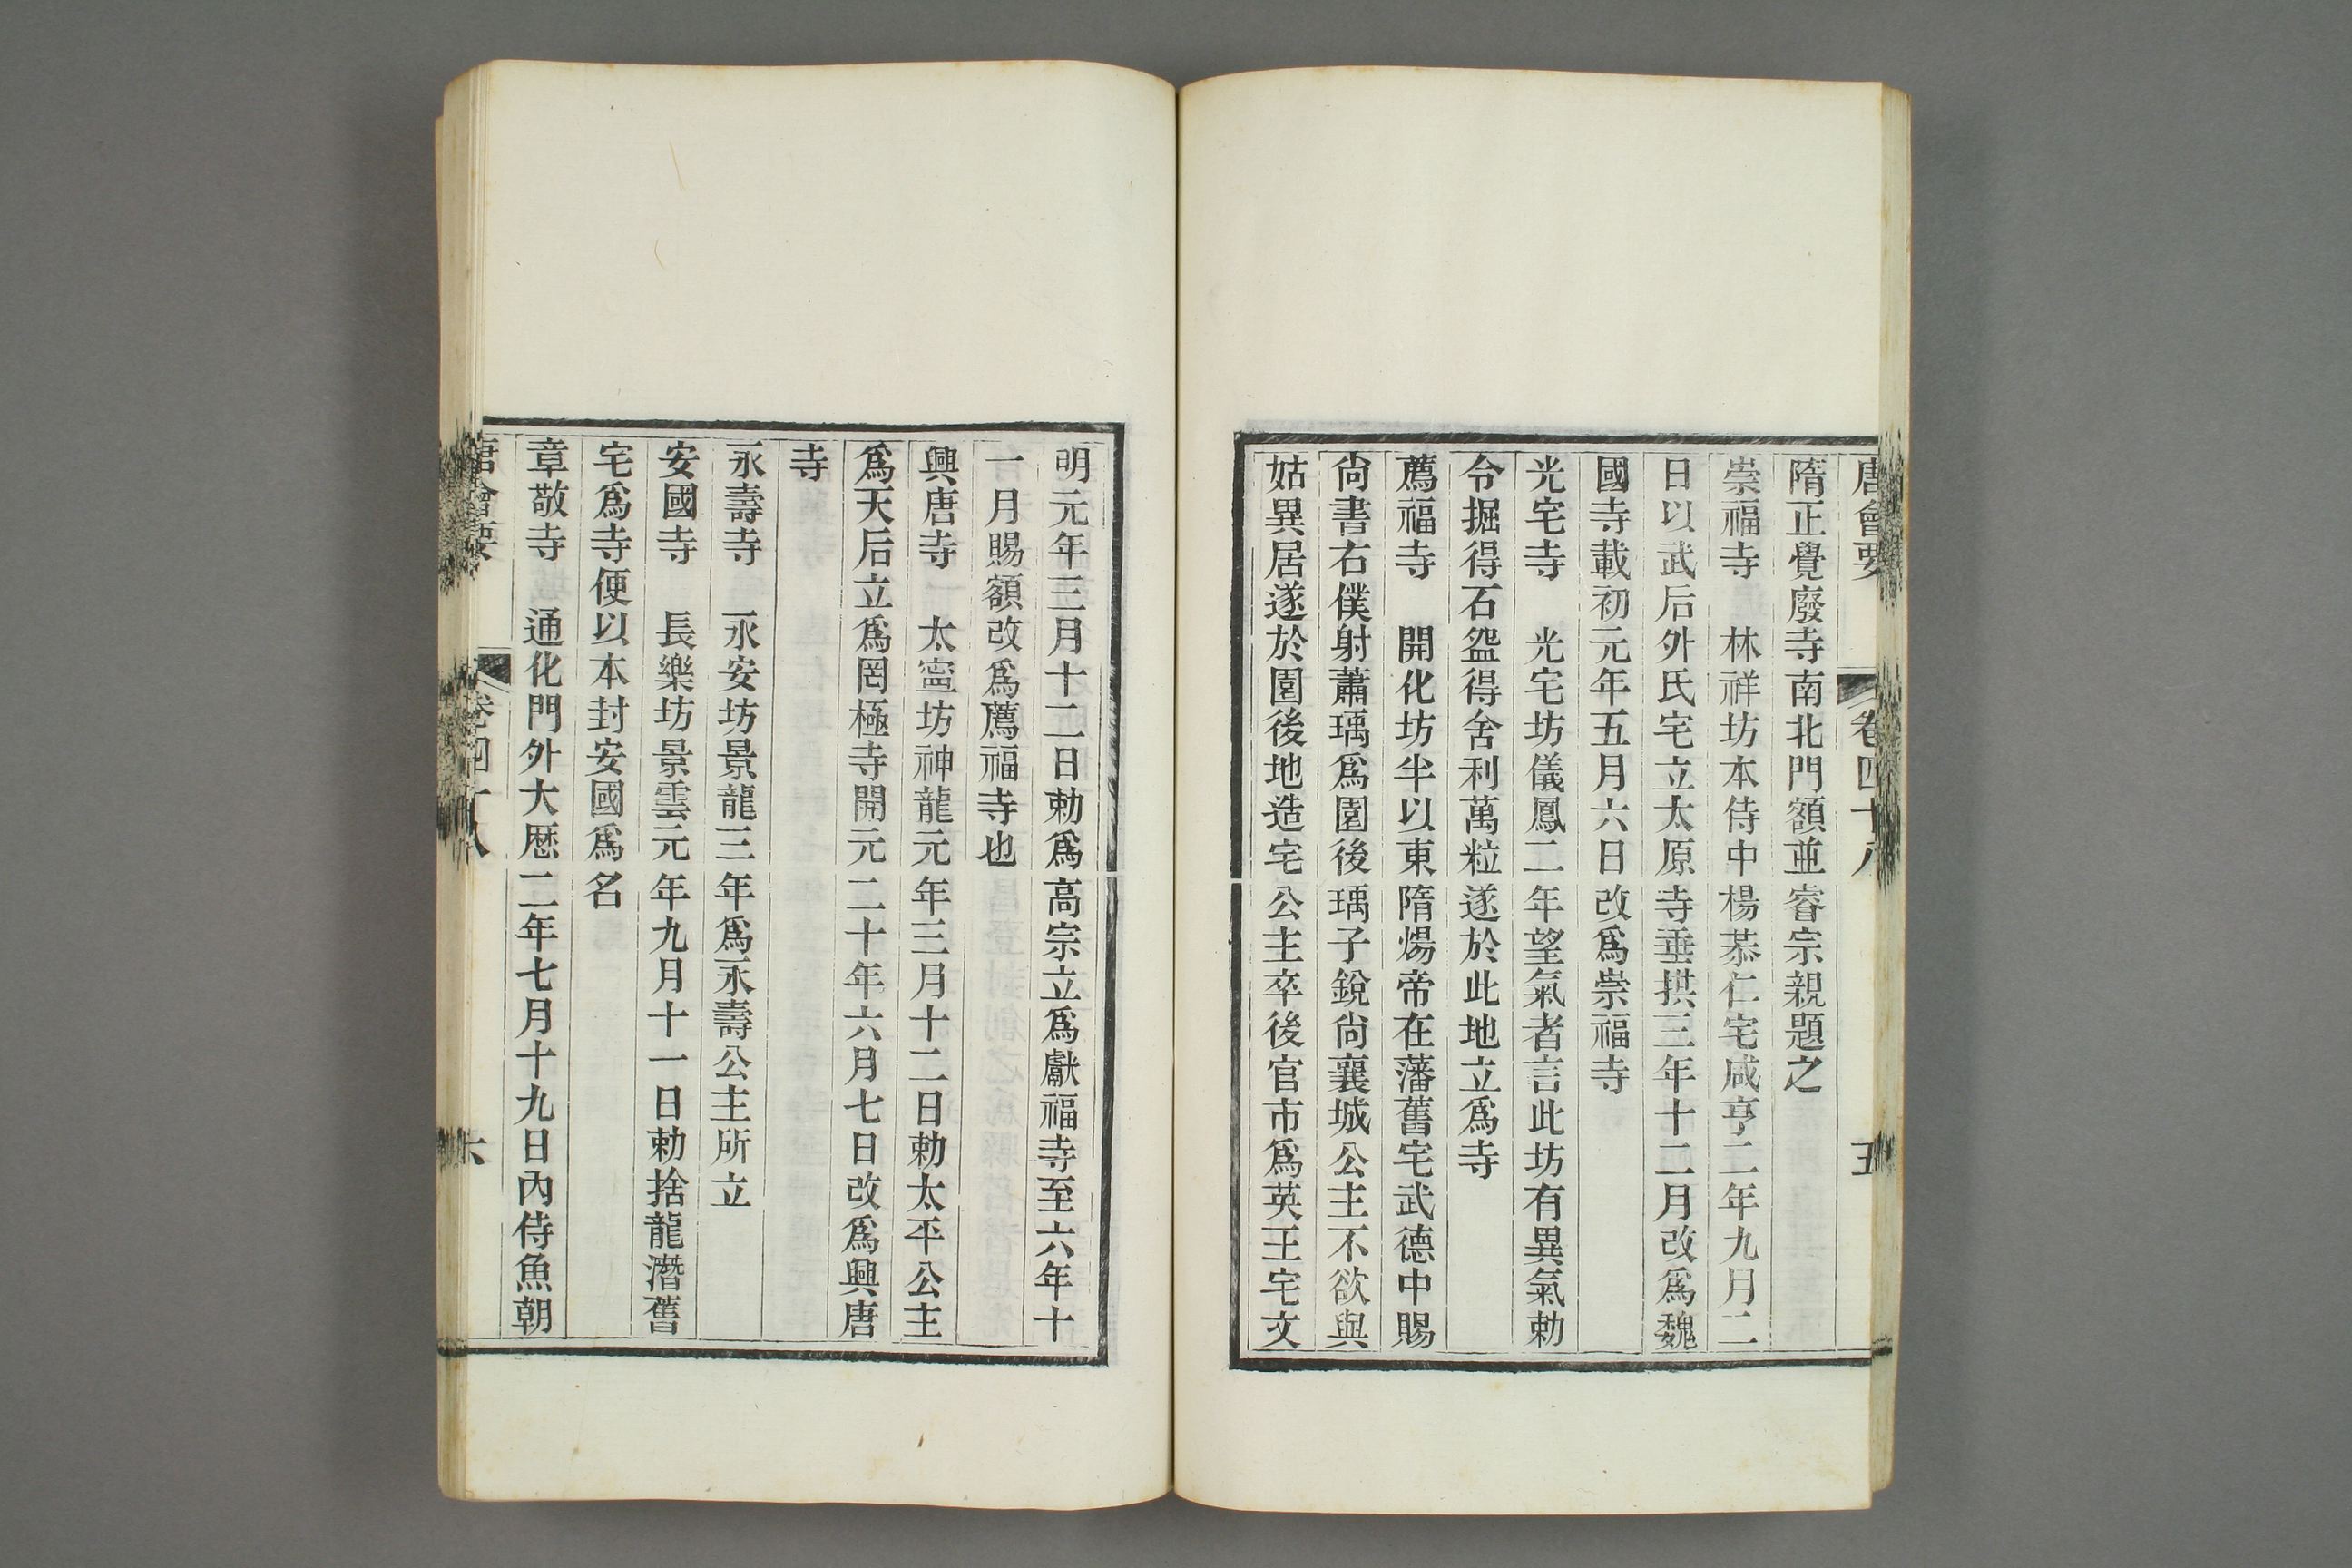 唐會要 卷四十八 五
隋正覺廢寺南北門額並睿宗親題之
崇福寺 林祥坊本侍中楊恭仁宅咸亨二年九月二
日以武后外氏宅立太原寺垂拱三年十二月改爲魏
國寺載初元年五月六日改爲崇福寺
光宅寺 光宅坊儀鳳二年望氣者言此坊有異氣勅
令掘得石盌得舍利萬粒遂於此地立爲寺
薦福寺 開化坊半以東隋煬帝在藩舊宅武德中賜
尚書右僕射蕭瑀爲園後瑀子銳尚襄城公主不欲與
姑異居遂於園後地造宅公主卒後官市爲英王宅文
明元年三月十二日勅爲高宗立爲獻福寺至六年十
一月賜額改爲薦福寺也
興唐寺 太寍坊神龍元年三月十二日勅太平公主
爲天后立爲罔極寺開元二十年六月七日改爲興唐
寺
永壽寺 永安坊景龍三年爲永壽公主所立
安國寺 長樂坊景雲元年九月十一日勅捨龍潛舊
宅爲寺便以本封安國爲名
章敬寺 通化門外大歷二年七月十九日內侍魚朝
唐會要 卷四十八 六